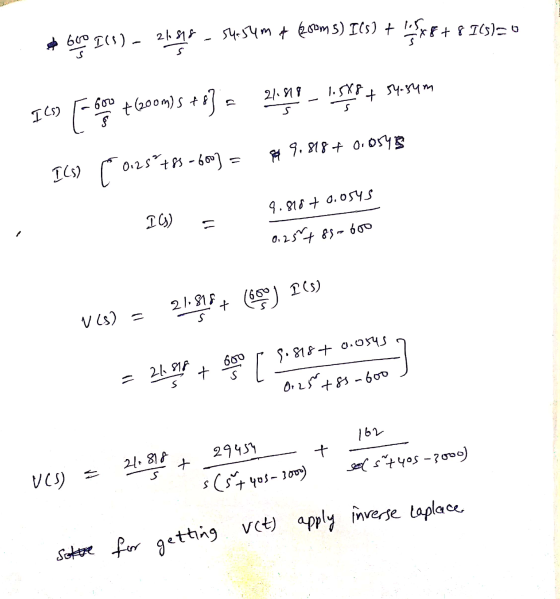 600/s I(s) - 21.818/s - 54.54m + (200m s) I(s) + 1.5/s × 8 + 8 I(s) = 0
I(s) [-600/s + (200m)s + 8] = 21.818/s - 1.5×8/s + 54.54m
I(s) [0.2s² + 8s - 600] = 9.818 + 0.054s
I(s) = (9.818 + 0.054s)/(0.2s² + 8s - 600)
V(s) = 21.818/s + (600/s) I(s)
= 21.818/s + 600/s [(9.818 + 0.054s)/(0.2s² + 8s - 600)]
V(s) = 21.818/s + 29454/(s(s² + 40s - 3000)) + 162/(s² + 40s - 3000)
for getting v(t) apply inverse Laplace